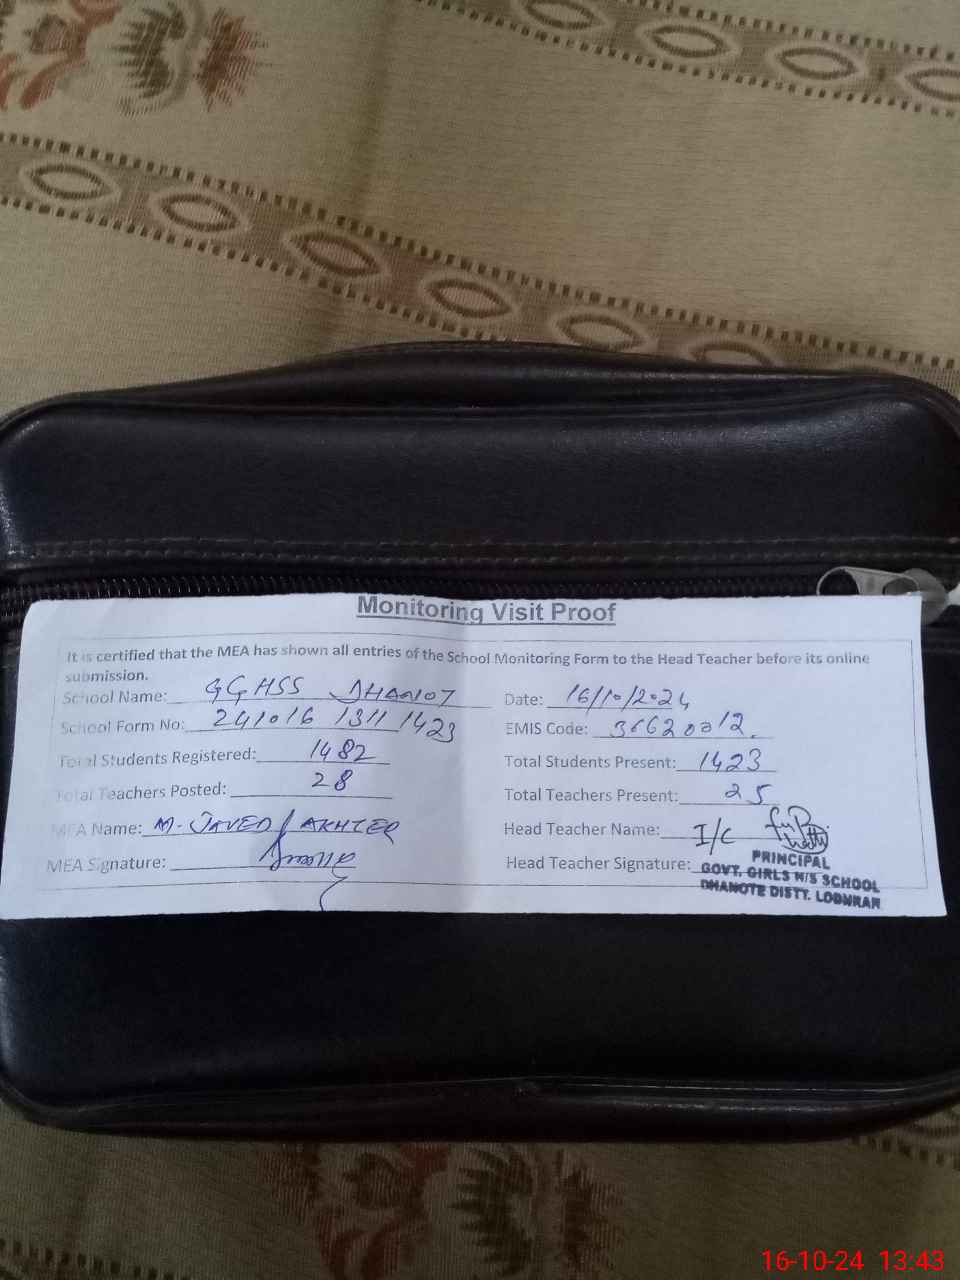 Monitoring Visit Proof
It is certified that the MEA has shown all entries of the School Monitoring Form to the Head Teacher before its online
submission.
School Name: GGHSS DHANOT Date: 16/10/2024
School Form No: 241016 1311 1423 EMIS Code: 36620012.
Total Students Registered: 1482 Total Students Present: 1423
Total Teachers Posted: 28 Total Teachers Present: 25
MEA Name: M. JAVED AKHTER Head Teacher Name: I/C
MEA Signature: Head Teacher Signature:
PRINCIPAL
GOVT. GIRLS H/S SCHOOL
DHANOTE DISTT. LODHRAN
16-10-24 13:43